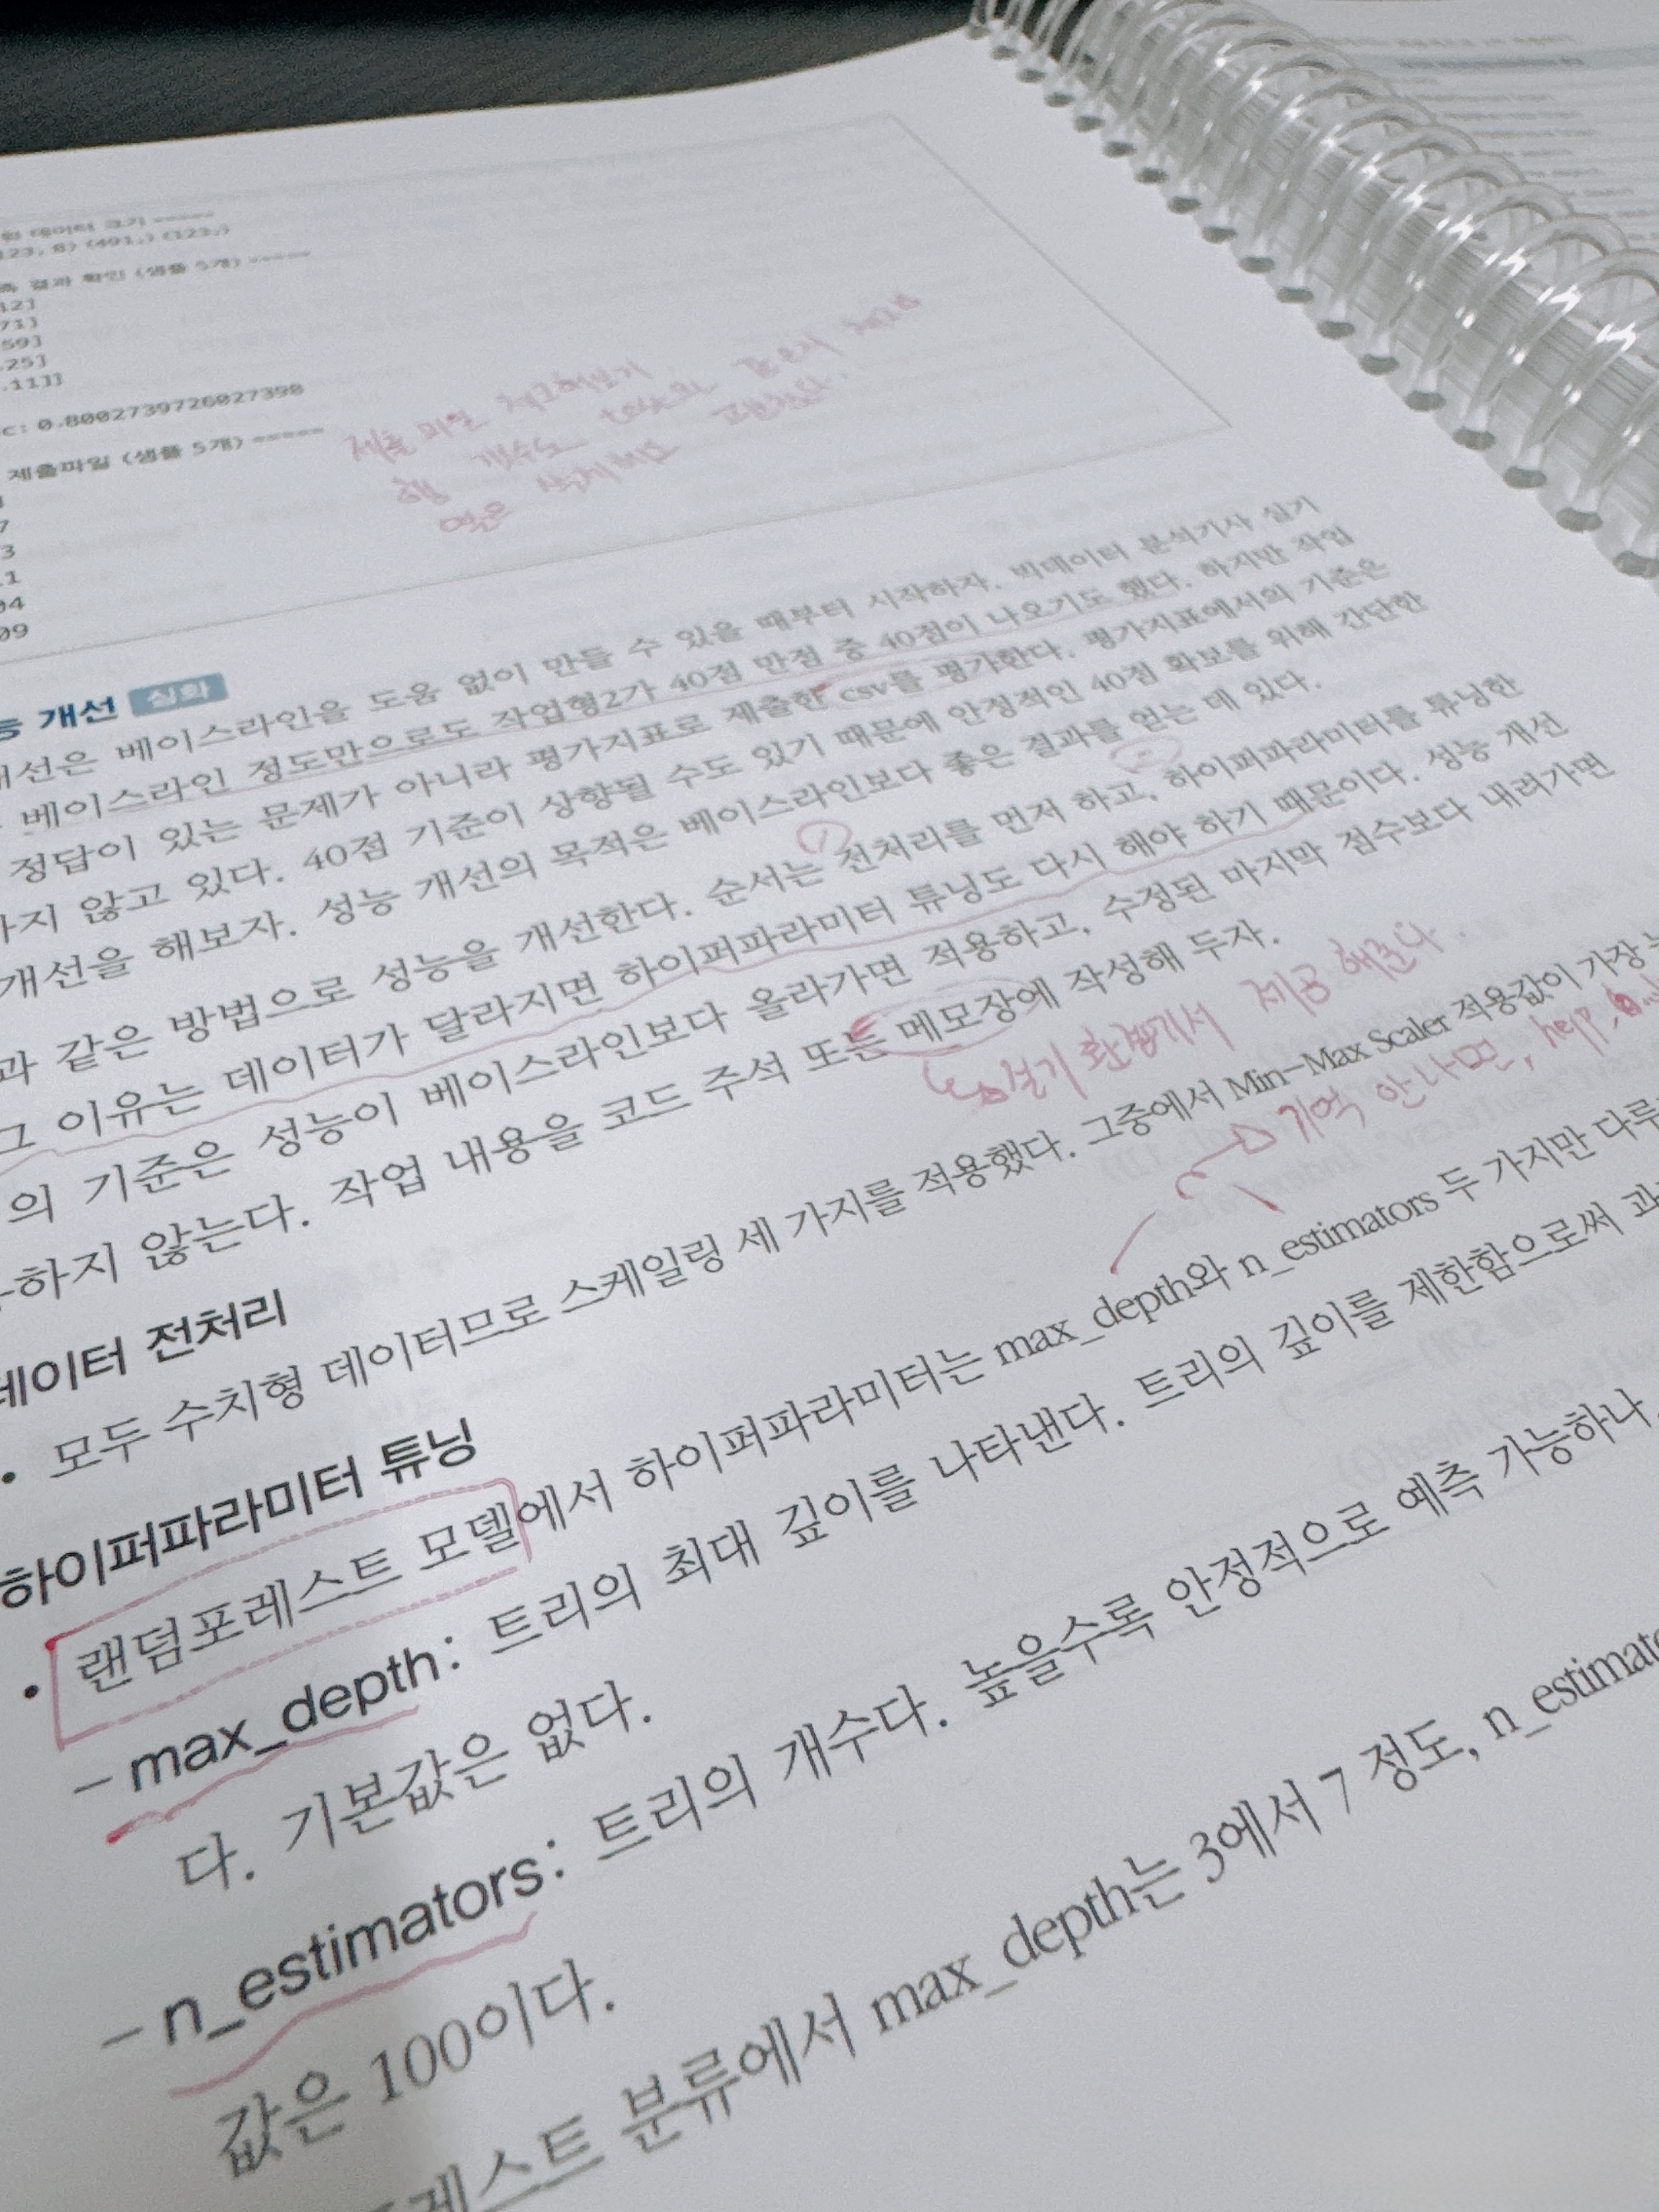 데이터 크기 =====
123, 8) (491,) (123,)
결과 확인 (샘플 5개) =====
12]
71]
59]
.25]
.11]]
c: 0.8002739726027398
제출파일 (샘플 5개) =====
7
3
04
09
제출 파일 체크해보기
행 갯수도 test와 같은지 체크
개선 심화
개선은 베이스라인을 도움 없이 만들 수 있을 때부터 시작하자. 빅데이터 분석기사 실기
베이스라인 정도만으로도 작업형2가 40점 만점 중 40점이 나오기도 했다. 하지만 작업
정답이 있는 문제가 아니라 평가지표로 제출한 csv를 평가한다. 평가지표에서의 기준은
하지 않고 있다. 40점 기준이 상향될 수도 있기 때문에 안정적인 40점 확보를 위해 간단한
개선을 해보자. 성능 개선의 목적은 베이스라인보다 좋은 결과를 얻는 데 있다.
과 같은 방법으로 성능을 개선한다. 순서는 전처리를 먼저 하고, 하이퍼파라미터를 튜닝한
그 이유는 데이터가 달라지면 하이퍼파라미터 튜닝도 다시 해야 하기 때문이다. 성능 개선
의 기준은 성능이 베이스라인보다 올라가면 적용하고, 수정된 마지막 점수보다 내려가면
하지 않는다. 작업 내용을 코드 주석 또는 메모장에 작성해 두자.
실기 환경에서 제공 해준다.
데이터 전처리
• 모두 수치형 데이터므로 스케일링 세 가지를 적용했다. 그중에서 Min-Max Scaler 적용값이 가장
기억 안나면, help,
하이퍼파라미터 튜닝
• 랜덤포레스트 모델에서 하이퍼파라미터는 max_depth와 n_estimators 두 가지만
– max_depth: 트리의 최대 깊이를 나타낸다. 트리의 깊이를 제한함으로써
다. 기본값은 없다.
– n_estimators: 트리의 개수다. 높을수록 안정적으로 예측 가능하나,
값은 100이다.
레스트 분류에서 max_depth는 3에서 7 정도,